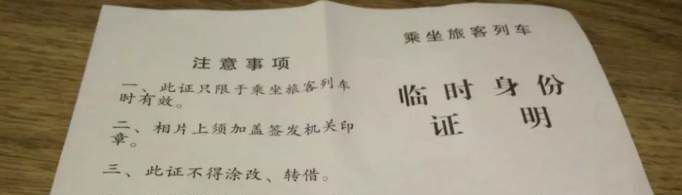 注意事项
一、此证只限于乘坐旅客列车
时有效。
二、相片上须加盖签发机关印
章。
三、此证不得涂改、转借。
乘坐旅客列车
临时身份
证明